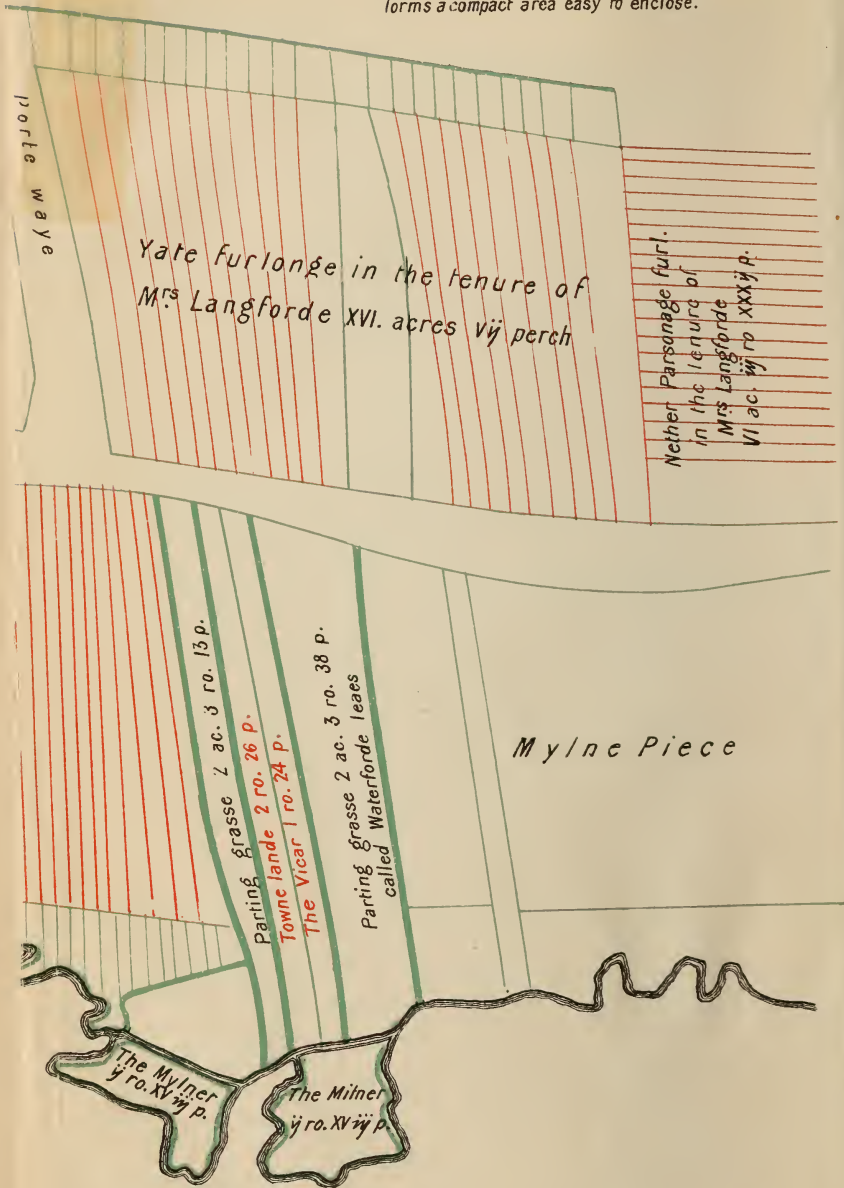 forms a compact area easy to enclose.
porte waye
Yate furlonge in the tenure of
Mrs Langforde XVI. acres vij perch
Nether Parsonage furl.
in the tenure of
Mrs Langforde
VI ac. iij ro XXXij p.
Parting grasse 2 ac. 3 ro. 13 p.
Towne lande 2 ro. 26 p.
The Vicar 1 ro. 24 p.
Parting grasse 2 ac. 3 ro. 38 p.
called Waterforde leaes
Mylne Piece
The Mylner
ij ro. XV iij p.
The Milner
ij ro. XV iij p.